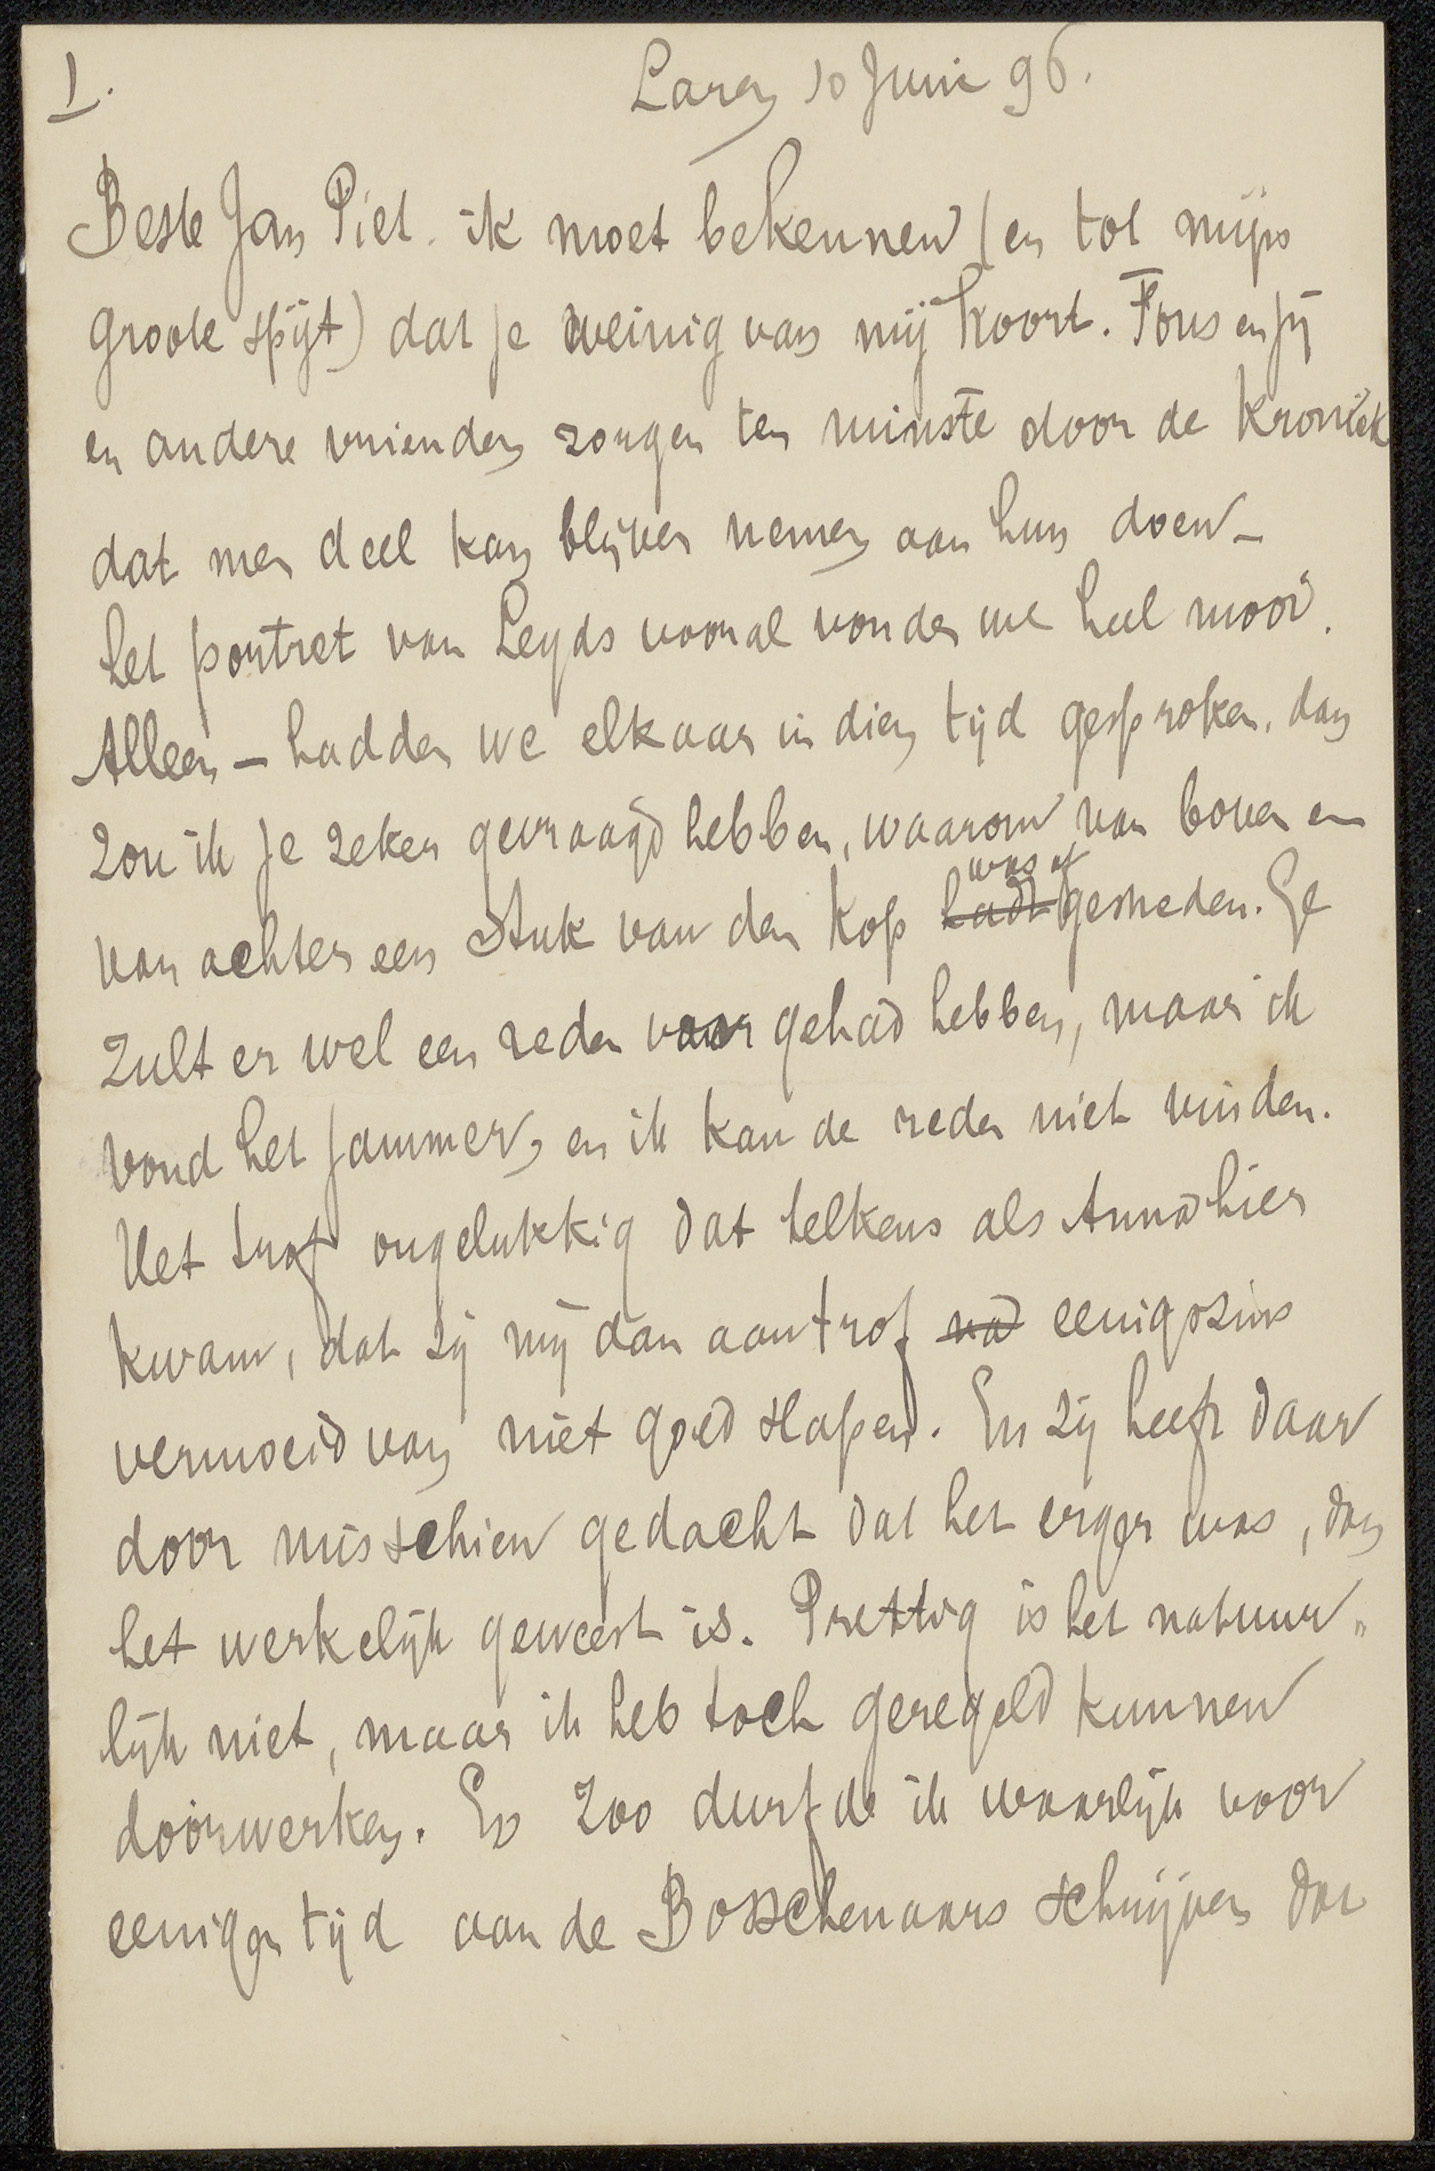 I.
Laren 10 Juni 96.
Beste Jan Piet. ik moet bekennen (en tot mijn
groote spijt) dat je weinig van mij hoort. Fons en jij
en andere vrienden zorgen ten minste door de Kroniek
dat men deel kan blijven nemen aan hun doen –
het portret van Leyds vooral vonden we heel mooi.
Alleen – hadden we elkaar in dien tijd gesproken, dan
zou ik je zeker gevraagd hebben, waarom van boven en
van achter een stuk van den kop hadt was afgesneden. Ge
zult er wel een reden voor gehad hebben, maar ik
vond het jammer, en ik kan de reden niet vinden.
Het trof ongelukkig dat telkens als Anna hier
kwam, dat zij mij dan aantrof eenigszins
vermoeid van niet goed slapen. En zij heeft daar
door misschien gedacht dat het erger was, dan
het werkelijk geweest is. Prettig is het natuur„
lijk niet, maar ik heb toch geregeld kunnen
doorwerken. En zoo durfde ik waarlijk voor
eenigen tijd aan de Bosschenaars schrijven dat